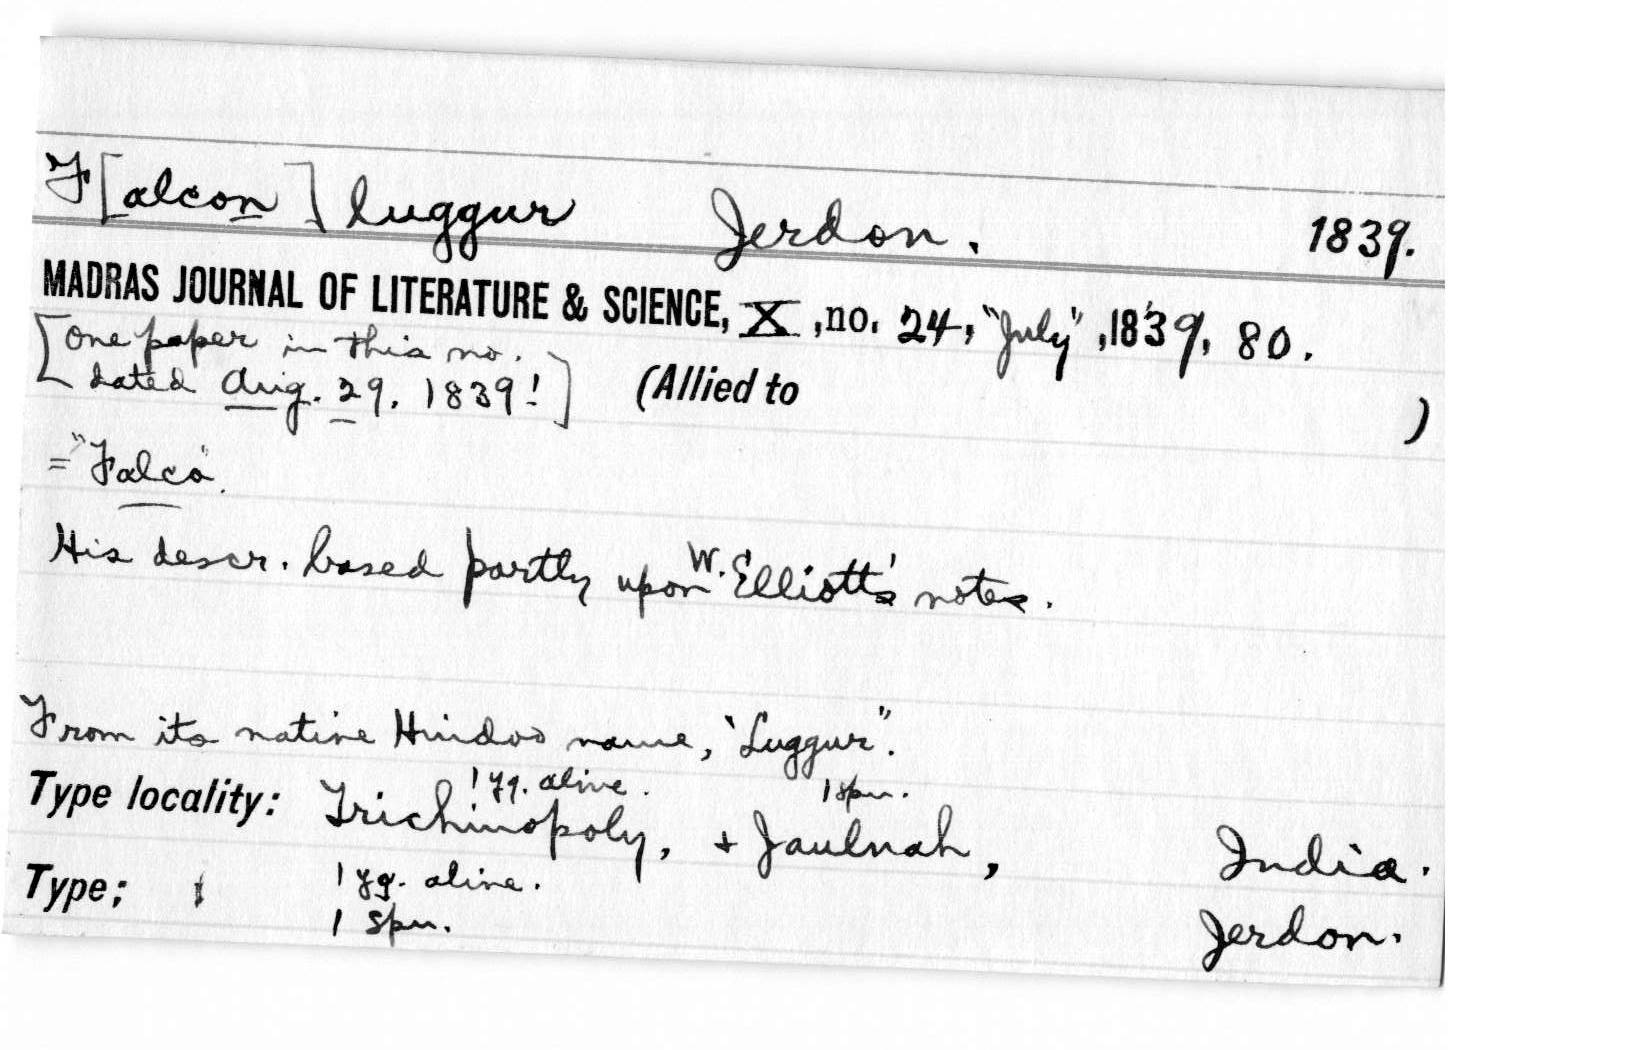 F[alcon] luggur Jerdon. 1839.
MADRAS JOURNAL OF LITERATURE & SCIENCE, X, no. 24, "July", 1839, 80.
[one paper in this no.
dated Aug. 29, 1839!] (Allied to )
= "Falco".
His descr. based partly upon W. Elliott's notes.
From its native Hindoo name, "Luggur".
1 yg. alive. 1 spn.
Type locality: Trichinopoly, + Jaulnah, India.
Type: 1 yg. alive.
1 spn. Jerdon.